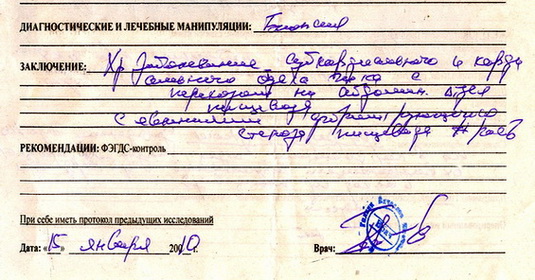 ДИАГНОСТИЧЕСКИЕ И ЛЕЧЕБНЫЕ МАНИПУЛЯЦИИ: Биопсия
ЗАКЛЮЧЕНИЕ: Хр заболевание субкардиального и карди
ального отдела с
переходом на абдомин. отдел
пищевода
С явлениями
стеноза пищевода
РЕКОМЕНДАЦИИ: ФЭГДС-контроль
При себе иметь протокол предыдущих исследований
Дата: «15» января 2010г.
Врач: